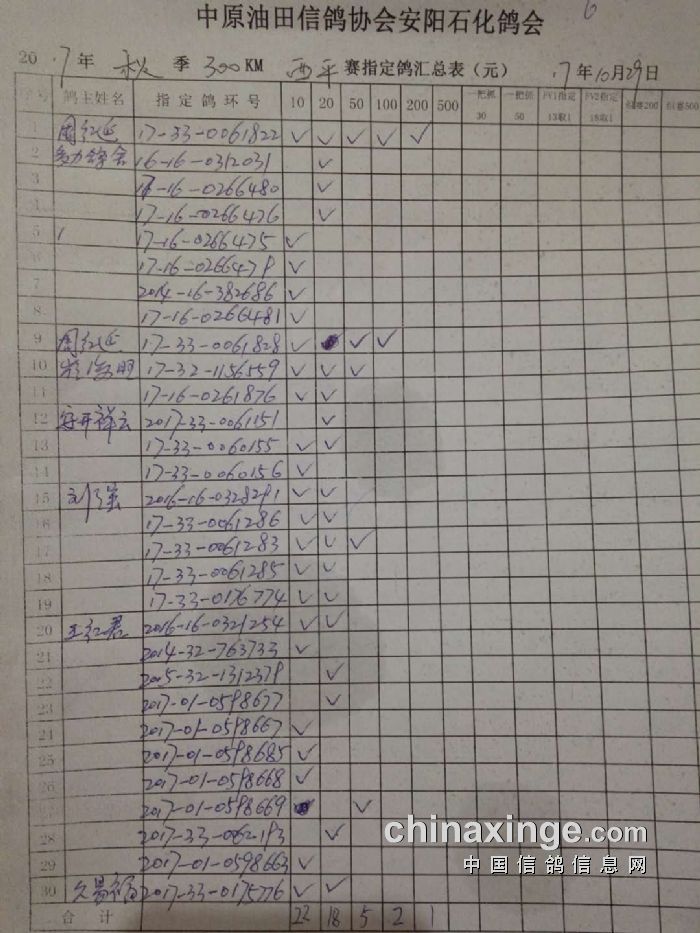 6
中原油田信鸽协会安阳石化鸽会
20 17年 秋 季 300KM 西平 赛指定鸽汇总表（元） 17年10月29日
序号 鸽主姓名 指定鸽环号 10 20 50 100 200 500 一把抓30 一把抓50 PV1指定13取1 PV2指定18取1
1 周红延 17-33-0061822 ✓ ✓ ✓ ✓ ✓
2 16-16-0312031 ✓
3 17-16-0266480 ✓
4 17-16-0266476 ✓
5 17-16-0266475 ✓
17-16-0266479 ✓
7 2014-16-382686 ✓
8 17-16-0266481 ✓
9 周红延 17-33-0061828 ✓ ✓ ✓
10 17-32-1156559 ✓ ✓ ✓
11 17-16-0261876 ✓ ✓
12 2017-33-0061151 ✓
13 17-33-0060155 ✓ ✓
14 17-33-0060156 ✓
15 刘强 2016-16-0328291 ✓ ✓
16 17-33-0061286 ✓ ✓
17 17-33-0061283 ✓ ✓ ✓
18 17-33-0061285 ✓ ✓
19 17-33-0176774 ✓ ✓
20 王红君 2016-16-0321254 ✓ ✓
21 2014-32-763733 ✓
22 2015-32-1312379 ✓
23 2017-01-0598677 ✓
24 2017-01-0598667 ✓
25 2017-01-0598685 ✓
26 2017-01-0598668 ✓
2017-01-0598669 ✓
28 2017-33-0062193 ✓
29 2017-01-0598663 ✓
30 2017-33-0175776 ✓ ✓
合计 22 18 5 2 1
chinaxinge.com
中国信鸽信息网